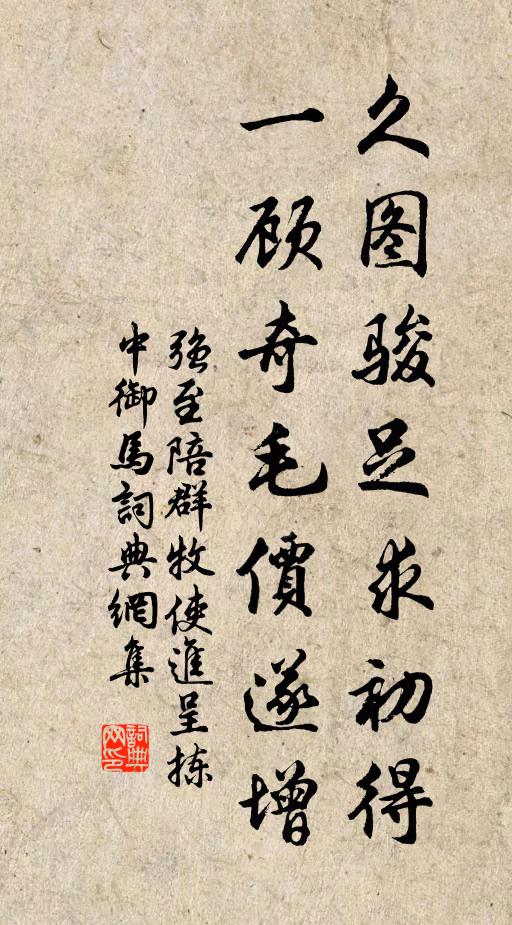 久图骏足求初得
一顾奇毛價遂增
强至陪群牧使進呈拣
中御馬詞典網集
詞典網印